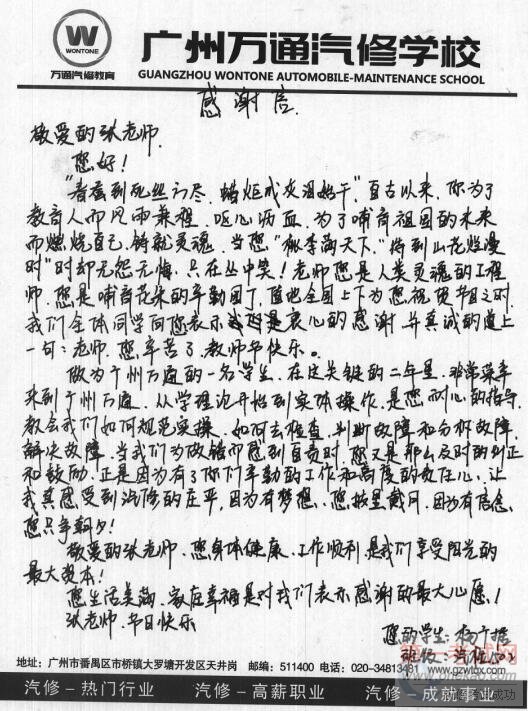 WONTONE
万通汽修教育
广州万通汽修学校
GUANGZHOU WONTONE AUTOMOBILE-MAINTENANCE SCHOOL
感谢信
敬爱的张老师
您好！
"春蚕到死丝方尽，蜡炬成灰泪始干"，自古以来，你为了
教育人而风雨兼程，呕心沥血，为了哺育祖国的未来
而燃烧自己，铸就灵魂，当您"桃李满天下"，"待到山花烂漫
时"时却无怨无悔，只在丛中笑！老师您是人类灵魂的工程
师，您是哺育花朵的辛勤园丁，值此全国上下为您祝贺节日之时，
我们全体同学向您表示衷心的感谢，并真诚的道上
一句：老师，您辛苦了，教师节快乐。
做为广州万通的一名学生，在这关键的二年里，非常荣幸
来到广州万通，从学理论开始到实体操作，是您耐心的指导，
教会我们如何规范实操，如何去检查，判断故障和分析故障，
解决故障，当我们为做错而感到自责时，您又是那么及时的纠正
和鼓励，正是因为有了你们辛勤的工作和高度的责任心，让
我真感受到汽修的庄严，因为有梦想，您披星戴月，因为有信念，
您只争朝夕！
敬爱的张老师，您身体健康，工作顺利，是我们享受阳光的
最大资本！
您生活美满，家庭幸福是对我们表示感谢的最大心愿！
张老师，节日快乐
您的学生：杨
班级：汽检501
地址：广州市番禺区市桥镇大罗塘开发区天井岗 邮编：511400 电话：020-34813481
汽修－热门行业 汽修－高薪职业 汽修－成就事业